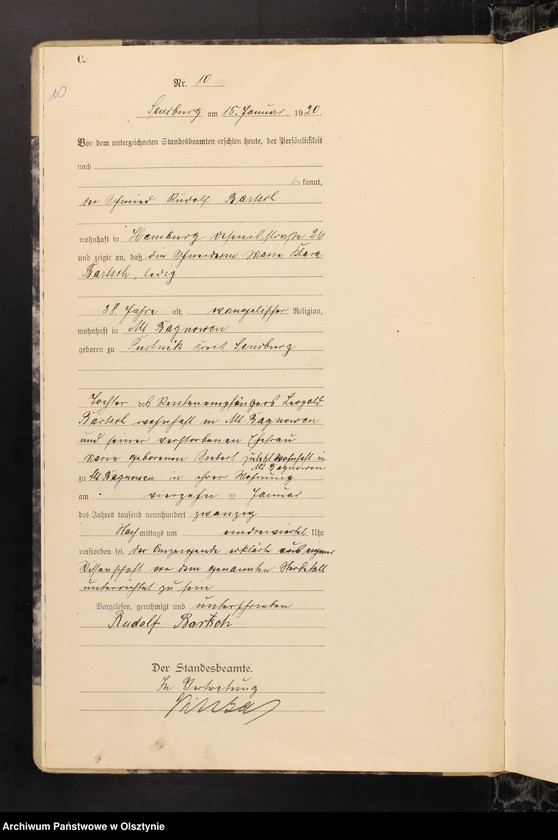 C.
10
Nr. 10
Sensburg am 15. Januar 1920.
Vor dem unterzeichneten Standesbeamten erschien heute, der Persönlichkeit
nach
kannt,
der Schmied Rudolf Bartsch
wohnhaft in Hamburg straße 26
und zeigte an, daß die Schneiderin Marie Klara
Bartsch, ledig
38 Jahre alt, evangelischer Religion,
wohnhaft in Alt Bagnowen
geboren zu Kreis Sensburg
Tochter des Rentenempfängers Leopold
Bartsch wohnhaft in Alt Bagnowen
und seiner verstorbenen Ehefrau
Marie geborenen Siebert zuletzt wohnhaft in
Alt Bagnowen
zu Alt Bagnowen in ihrer Wohnung
am vierzehn ten Januar
des Jahres tausend neunhundert zwanzig
Nachmittags um eindreiviertel Uhr
verstorben sei. Der Anzeigende erklärte aus eigener
Wissenschaft von dem genannten Sterbefall
unterrichtet zu sein
Vorgelesen, genehmigt und unterschrieben
Rudolf Bartsch
Der Standesbeamte.
In Vertretung
Archiwum Państwowe w Olsztynie